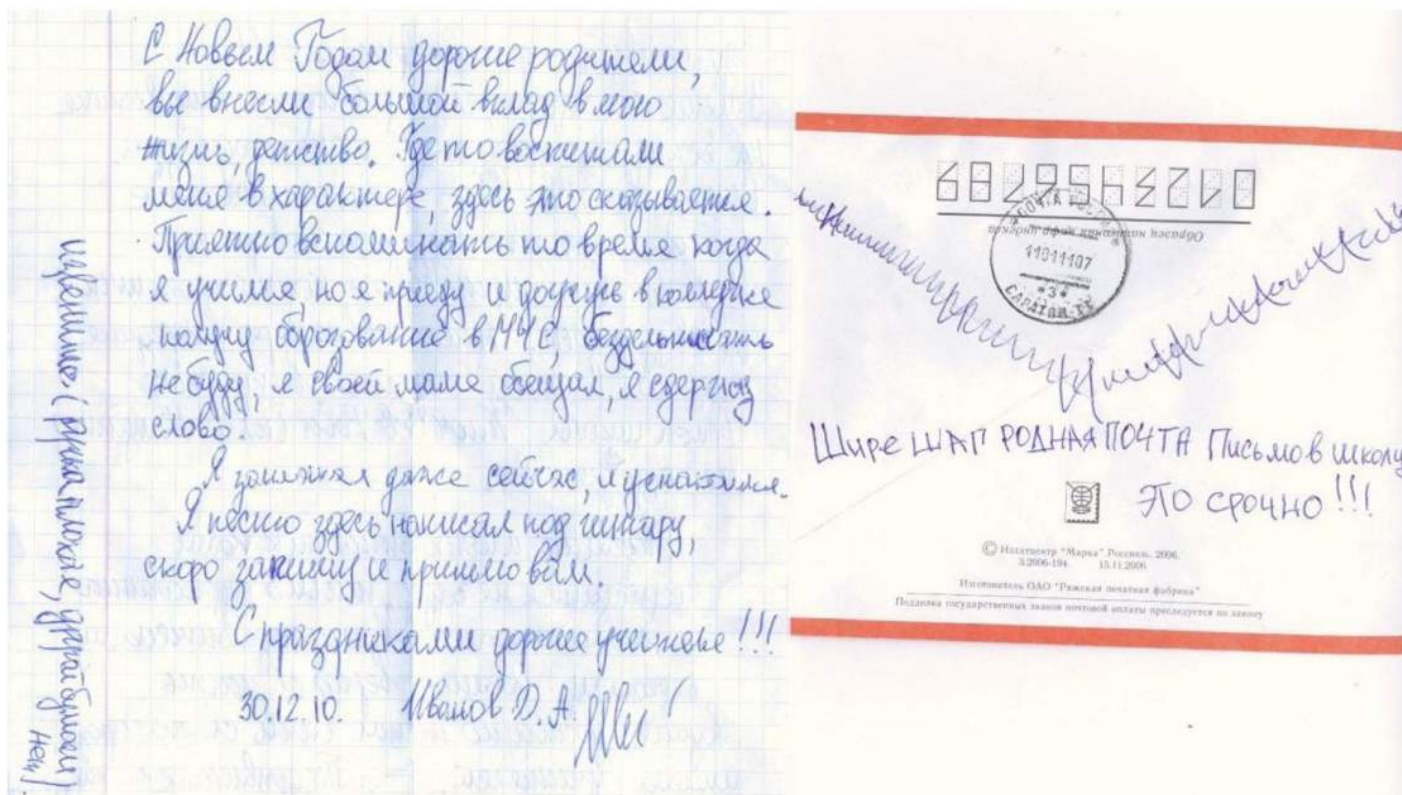 С Новым Годом дорогие родители,
вы внесли большой вклад в мою
жизнь, детство. Где то воспитали
меня в характере, здесь это сказывается.
Приятно вспоминать то время когда
я учился, но я приеду и доучусь в колледже
получу оброзование в МЧС, бездельничать
не буду, я своей маме обещал, я сдержу
слово.
Я занимаюсь даже сейчас,
Я песню здесь написал под гитару,
скоро запишу и пришлю вам.
С праздниками дорогие учителя!!!
30.12.10. Иванов Д.А.
извените, (ручка плохая, другой бумаги
нет)
0123456789
Образец написания цифр индекса
ПОЧТА РОССИИ
САРАТОВ
Шире ШАГ РОДНАЯ ПОЧТА Письмо в школу
ЭТО СРОЧНО!!!
© Издатцентр "Марка" Россвязь. 2006.
3.2006-194 15.11.2006
Изготовитель ОАО "Ряжская печатная фабрика"
Подделка государственных знаков почтовой оплаты преследуется по закону